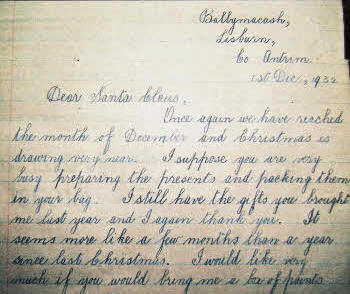 Ballymacash,
Lisburn,
Co Antrim.
1st Dec, 1932
Dear Santa Claus,
Once again we have reached
the month of December and Christmas is
drawing very near. I suppose you are very
busy preparing the presents and packing them
in your bag. I still have the gifts you brought
me last year and I again thank you. It
seems more like a few months than a year
since last Christmas. I would like very
much if you would bring me a box of paints